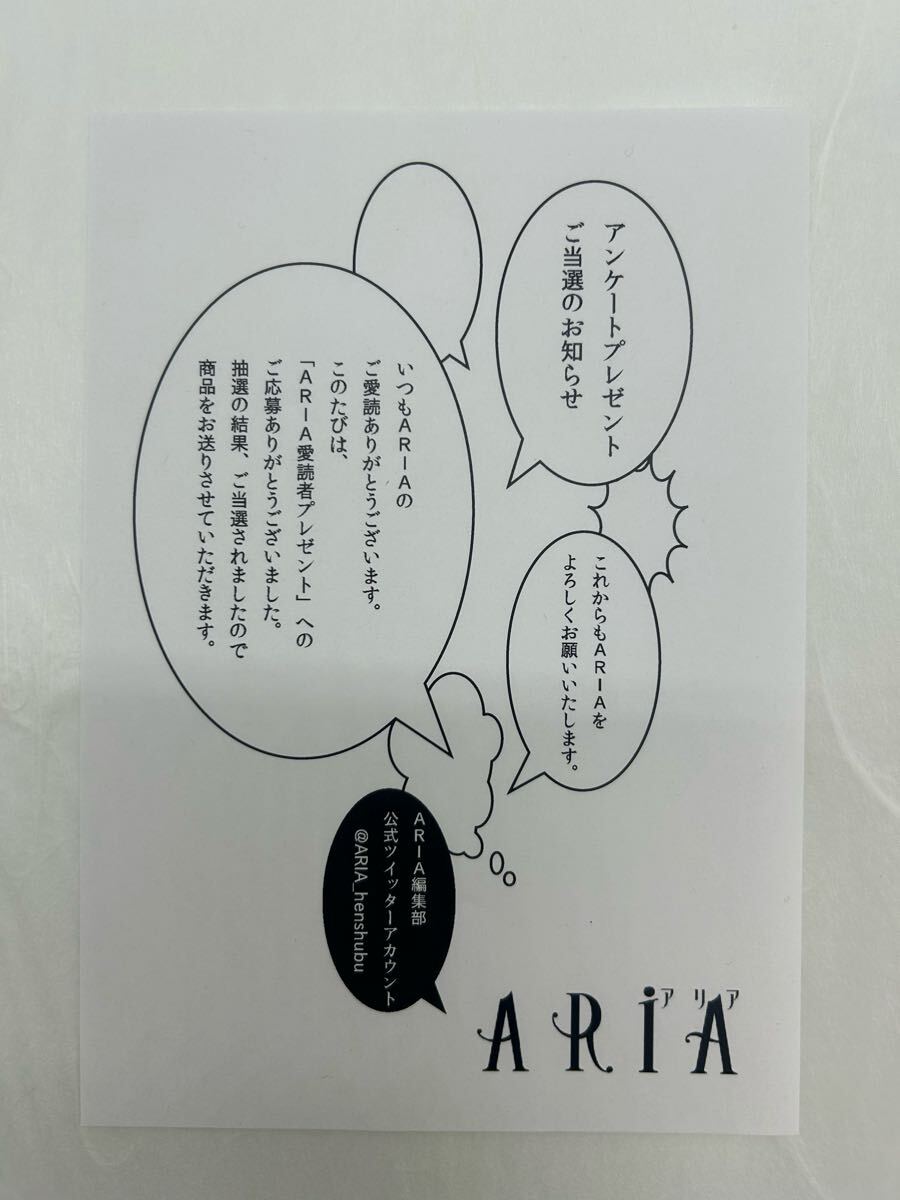 アンケートプレゼント
ご当選のお知らせ
いつもARIAの
ご愛読ありがとうございます。
このたびは、
「ARIA愛読者プレゼント」への
ご応募ありがとうございました。
抽選の結果、ご当選されましたので
商品をお送りさせていただきます。
これからもARIAを
よろしくお願いいたします。
ARIA編集部
公式ツイッターアカウント
@ARIA_henshubu
アリア
ARiA